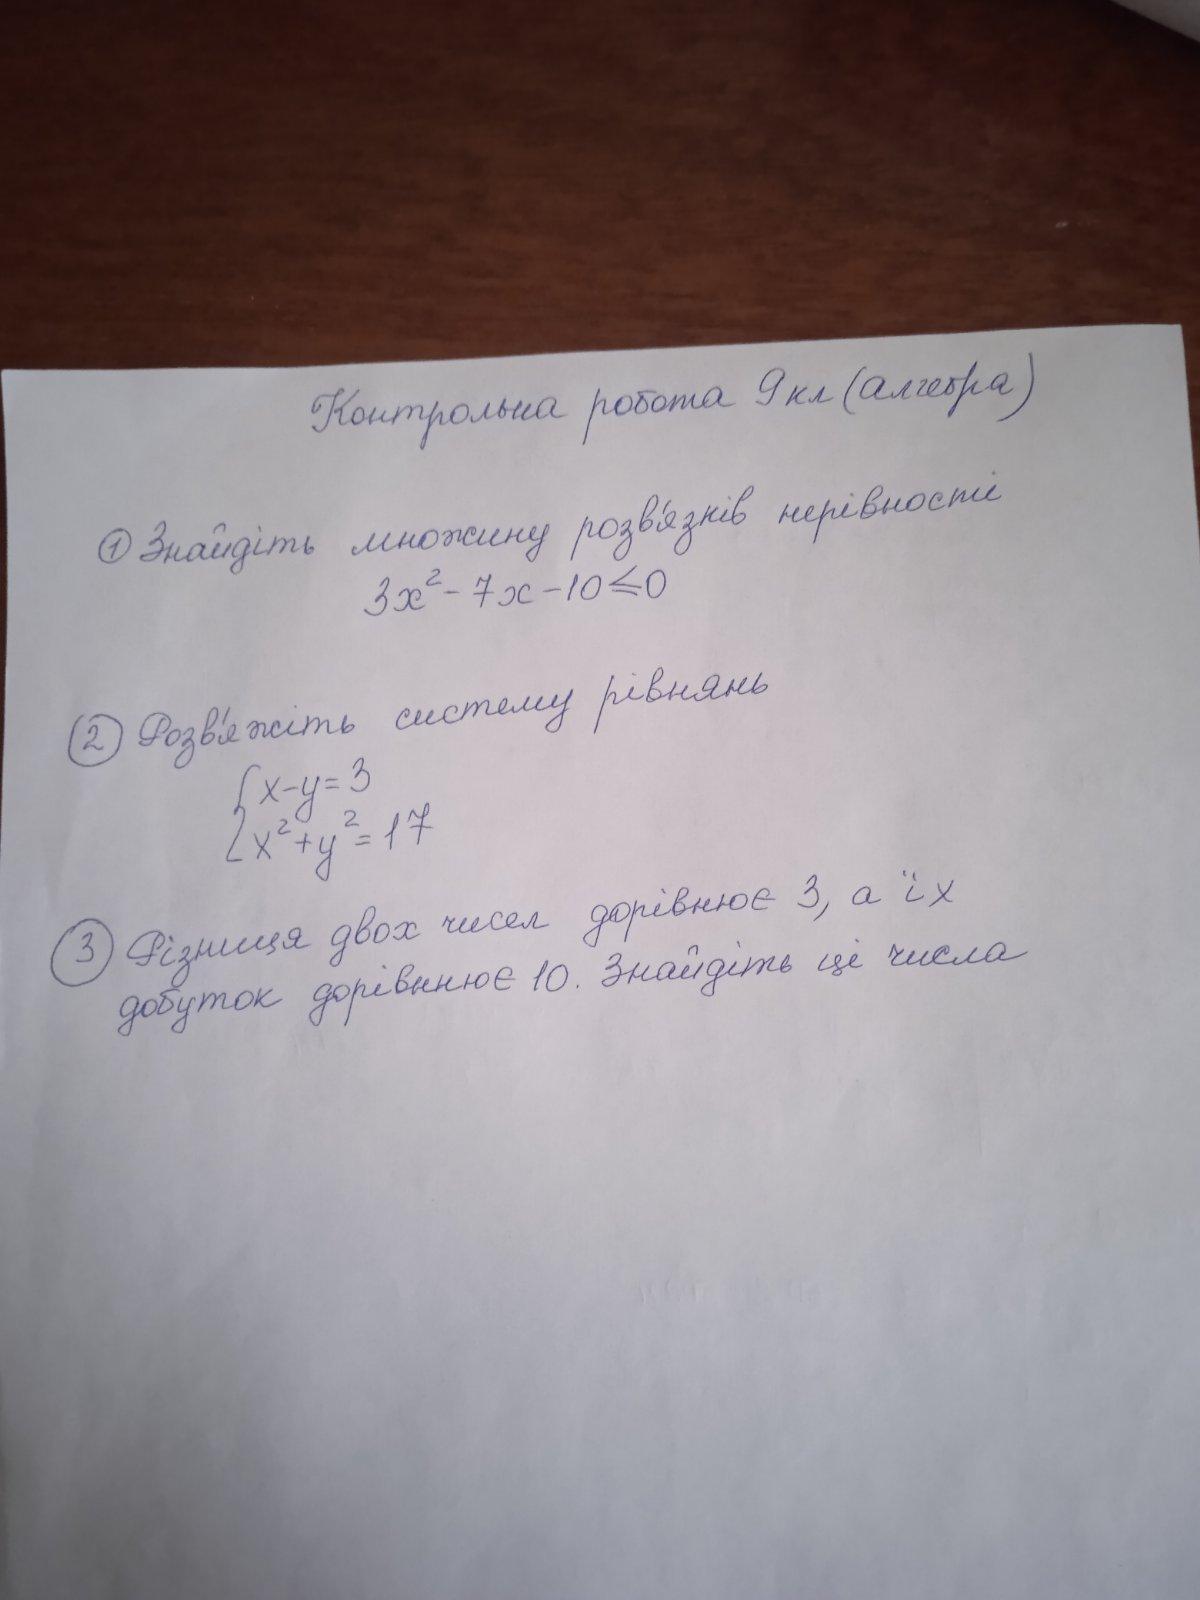 Контрольна робота 9 кл (алгебра)
① Знайдіть множину розв'язків нерівності
3x² - 7x - 10 ≤ 0
② Розв'яжіть систему рівнянь
{ x - y = 3
x² + y² = 17
③ Різниця двох чисел дорівнює 3, а їх
добуток дорівннює 10. Знайдіть ці числа